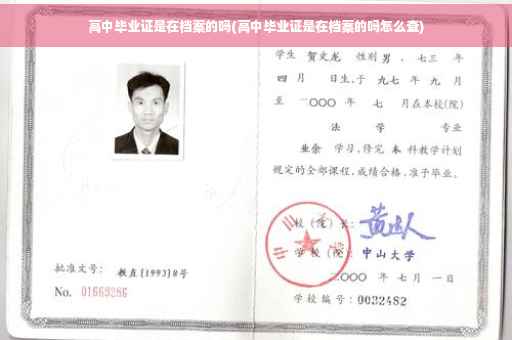 高中毕业证是在档案的吗(高中毕业证是在档案的吗怎么查)
学生 贺文龙 性别 男 , 七三 年
四 月 日生,于 九七 年 九 月
至 二〇〇〇 年 七 月在本校(院)
法 学 专业
业余 学习,修完 本 科教学计划
规定的全部课程,成绩合格,准予毕业。
校(院)长:
学校(院): 中山大学
二〇〇〇 年 七 月 一 日
学校编号: 0032482
批准文号: 教直[1993]8号
No. 01663286
中山大学